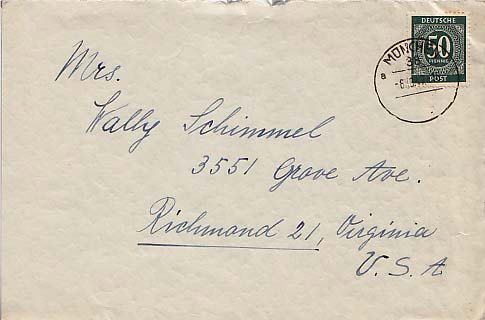 DEUTSCHE
50
PFENNIG
POST
a
Mrs.
Wally Schimmel
3551 Grove Ave.
Richmond 21, Virginia
U.S.A